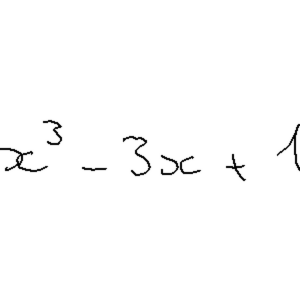 x³ - 3x + 1